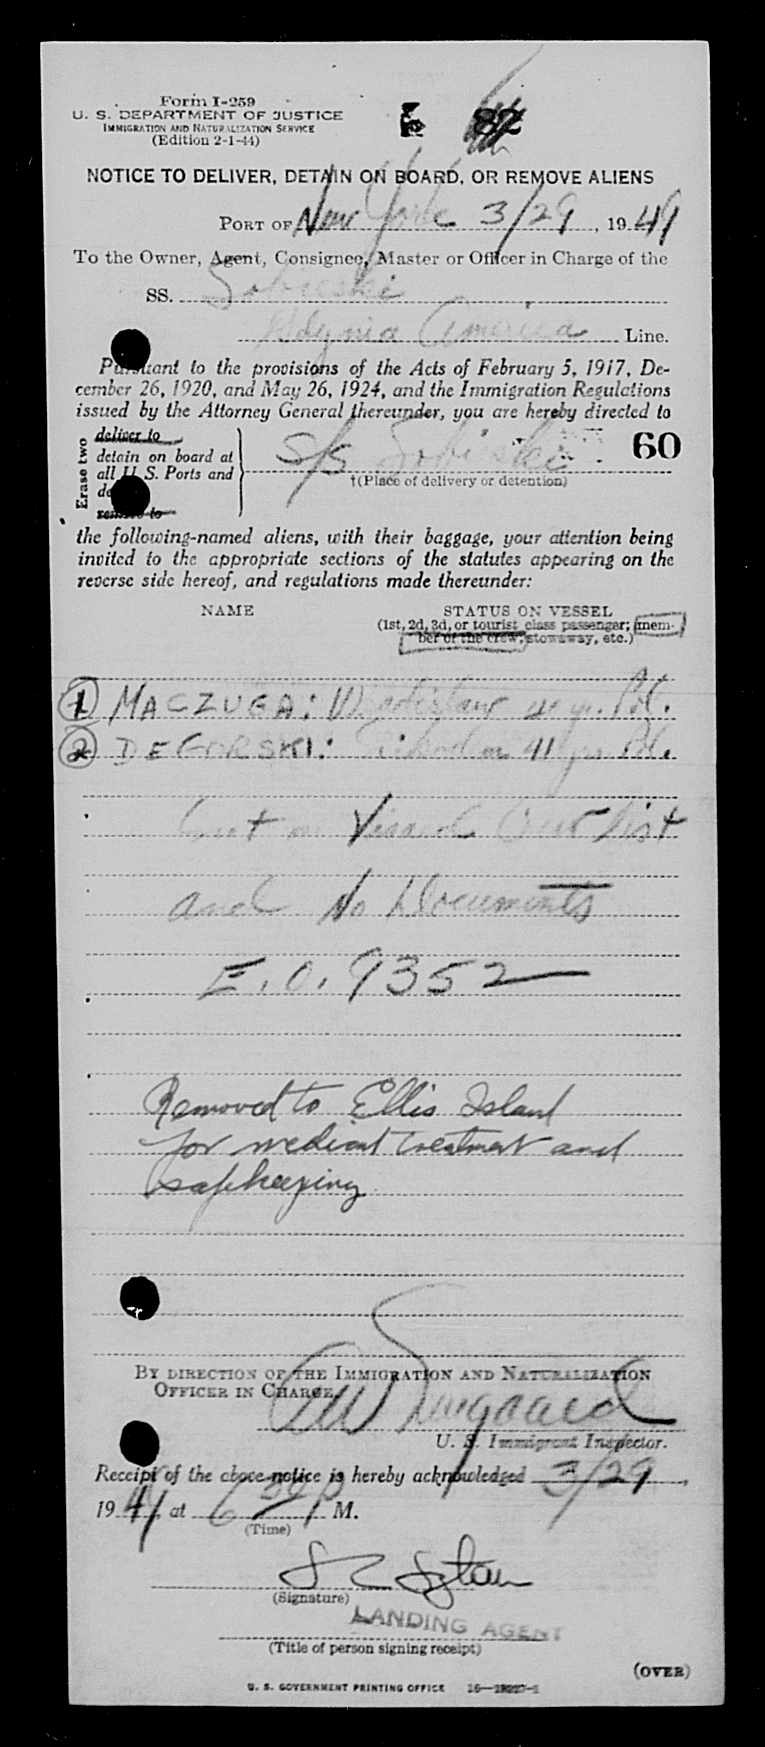 Form I-259
U. S. DEPARTMENT OF JUSTICE
IMMIGRATION AND NATURALIZATION SERVICE
(Edition 2-1-44)
82
NOTICE TO DELIVER, DETAIN ON BOARD, OR REMOVE ALIENS
PORT OF New York 3/29, 1949
To the Owner, Agent, Consignee, Master or Officer in Charge of the
SS. Sobieski
Gdynia America Line.
Pursuant to the provisions of the Acts of February 5, 1917, De-
cember 26, 1920, and May 26, 1924, and the Immigration Regulations
issued by the Attorney General thereunder, you are hereby directed to
Erase two
deliver to
detain on board at
all U. S. Ports and
remove to
S/S Sobieski
60
†(Place of delivery or detention)
the following-named aliens, with their baggage, your attention being
invited to the appropriate sections of the statutes appearing on the
reverse side hereof, and regulations made thereunder:
NAME STATUS ON VESSEL
(1st, 2d, 3d, or tourist class passenger; mem-
ber of the crew, stowaway, etc.)
1 MACZUGA: Pol.
2 DEGORSKI: 41 yrs Pol.
Visaed Crew List
and No Documents
E.O. 9352
Removed to Ellis Island
for medical treatment and
safekeeping
BY DIRECTION OF THE IMMIGRATION AND NATURALIZATION
OFFICER IN CHARGE
U. S. Immigrant Inspector.
Receipt of the above notice is hereby acknowledged 3/29,
1949, at 6 M.
(Time)
(Signature)
LANDING AGENT
(Title of person signing receipt)
(OVER)
U. S. GOVERNMENT PRINTING OFFICE